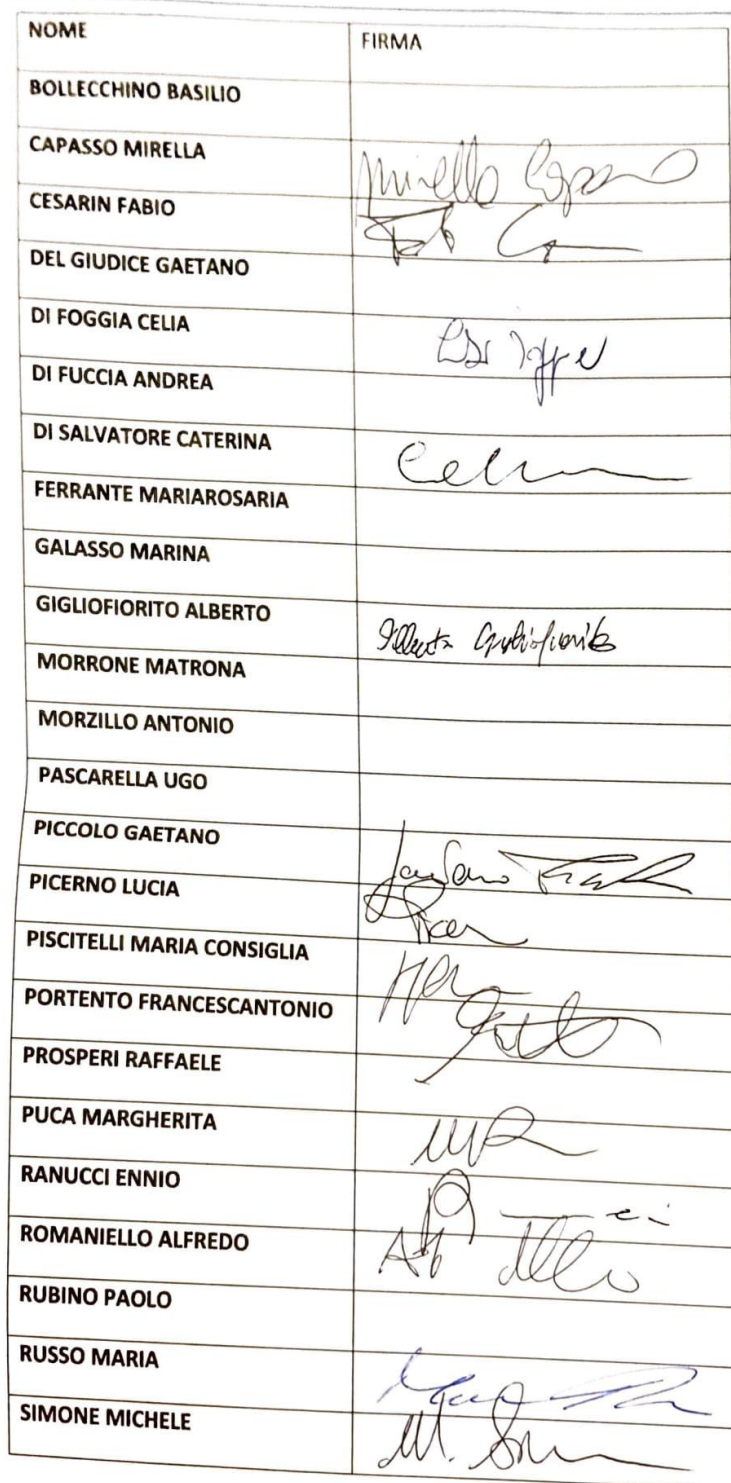 NOME FIRMA
BOLLECCHINO BASILIO
CAPASSO MIRELLA Mirella Capasso
CESARIN FABIO
DEL GIUDICE GAETANO
DI FOGGIA CELIA
DI FUCCIA ANDREA
DI SALVATORE CATERINA
FERRANTE MARIAROSARIA
GALASSO MARINA
GIGLIOFIORITO ALBERTO Alberto Gigliofiorito
MORRONE MATRONA
MORZILLO ANTONIO
PASCARELLA UGO
PICCOLO GAETANO Gaetano
PICERNO LUCIA
PISCITELLI MARIA CONSIGLIA
PORTENTO FRANCESCANTONIO
PROSPERI RAFFAELE
PUCA MARGHERITA
RANUCCI ENNIO
ROMANIELLO ALFREDO
RUBINO PAOLO
RUSSO MARIA
SIMONE MICHELE M.